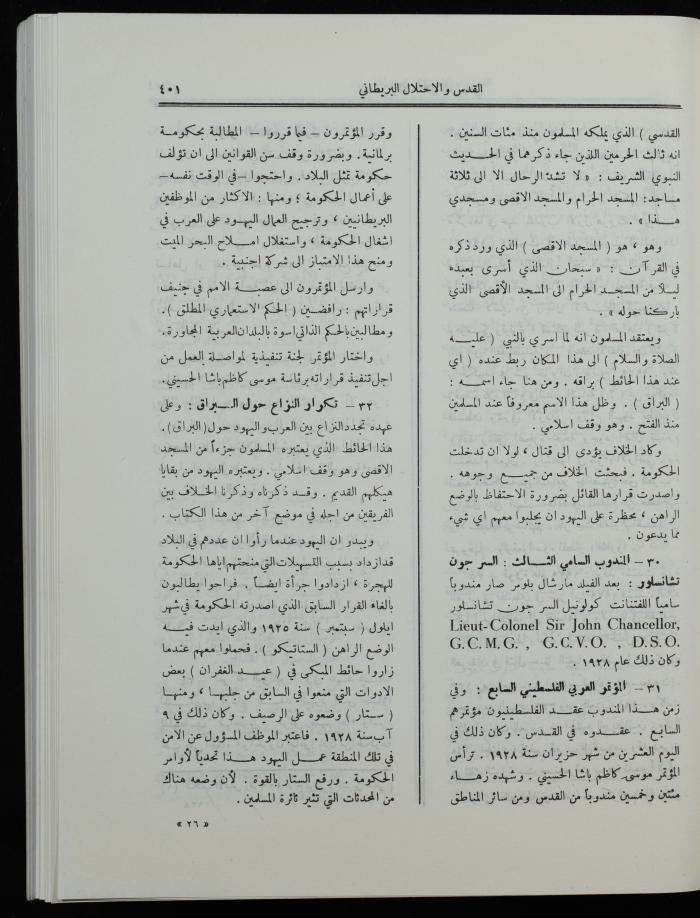 القدس والاحتلال البريطاني
٤٠١
القدسي ) الذي يملكه المسلمون منذ مئات السنين .
انه ثالث الحرمين اللذين جاء ذكرهما في الحديث
النبوي الشريف : « لا تشد الرحال الا الى ثلاثة
مساجد: المسجد الحرام والمسجد الاقصى ومسجدي
هذا » .
وهو ، هو ( المسجد الاقصى ) الذي ورد ذكره
في القرآن : « سبحان الذي أسرى بعبده
ليلاً من المسجد الحرام الى المسجد الأقصى الذي
باركنا حوله » .
ويعتقد المسلمون انه لما اسري بالنبي ( عليه
الصلاة والسلام ) الى هذا المكان ربط عنده ( اي
عند هذا الحائط ) براقه . ومن هنا جاء اسمه :
( البراق ) . وظل هذا الاسم معروفاً عند المسلمين
منذ الفتح . وهو وقف اسلامي .
وكاد الخلاف يؤدى الى قتال ، لولا ان تدخلت
الحكومة . فبحثت الخلاف من جميع وجوهه .
واصدرت قرارها القائل بضرورة الاحتفاظ بالوضع
الراهن ، محظرة على اليهود ان يجلبوا معهم اي شيء
مما يدعون .
٣٠ – المندوب السامي الثالث : السر جون
تشانسلور : بعد الفيلد مارشال بلومر صار مندوباً
سامياً اللفتنانت كولونيل السر جون تشانسلور
Lieut-Colonel Sir John Chancellor,
G.C.M.G. , G.C.V.O. , D.S.O.
وكان ذلك عام ١٩٢٨ .
٣١ – المؤتمر العربي الفلسطيني السابع : وفي
زمن هذا المندوب عقد الفلسطينيون مؤتمرهم
السابع . عقدوه في القدس . وكان ذلك في
اليوم العشرين من شهر حزيران سنة ١٩٢٨ . ترأس
المؤتمر موسى كاظم باشا الحسيني . وشهده زهاء
مئتين وخمسين مندوباً من القدس ومن سائر المناطق
وقرر المؤتمرون – فيما قرروا – المطالبة بحكومة
برلمانية . وبضرورة وقف سن القوانين الى ان تؤلف
حكومة تمثل البلاد . واحتجوا –في الوقت نفسه–
على أعمال الحكومة ؛ ومنها : الاكثار من الموظفين
البريطانيين ، وترجيح العمال اليهود على العرب في
اشغال الحكومة ، واستغلال املاح البحر الميت
ومنح هذا الامتياز الى شركة اجنبية .
وارسل المؤتمرون الى عصبة الامم في جنيف
قراراتهم : رافضين ( الحكم الاستعماري المطلق ) .
ومطالبين بالحكم الذاتي اسوة بالبلدان العربية المجاورة.
واختار المؤتمر لجنة تنفيذية لمواصلة العمل من
اجل تنفيذ قراراته برئاسة موسى كاظم باشا الحسيني.
٣٢ – تكرار النزاع حول البراق : وعلى
عهده تجدد النزاع بين العرب واليهود حول (البراق).
هذا الحائط الذي يعتبره المسلمون جزءاً من المسجد
الاقصى وهو وقف اسلامي . ويعتبره اليهود من بقايا
هيكلهم القديم . وقد ذكرناه وذكرنا الخلاف بين
الفريقين من اجله في موضع آخر من هذا الكتاب .
ويبدو ان اليهود عندما رأوا ان عددهم في البلاد
قد ازداد بسبب التسهيلات التي منحتهم اياها الحكومة
للهجرة ، ازدادوا جرأة ايضاً . فراحوا يطالبون
بالغاء القرار السابق الذي اصدرته الحكومة في شهر
ايلول ( سبتمبر ) سنة ١٩٢٥ والذي ايدت فيه
الوضع الراهن ( الستاتيكو ) . فحملوا معهم عندما
زاروا حائط المبكى في ( عيد الغفران ) بعض
الادوات التي منعوا في السابق من جلبها ، ومنها
( ستار ) وضعوه على الرصيف . وكان ذلك في ٩
آب سنة ١٩٢٨ . فاعتبر الموظف المسؤول عن الامن
في تلك المنطقة عمل اليهود هذا تحدياً لأوامر
الحكومة . ورفع الستار بالقوة . لأن وضعه هناك
من المحدثات التي تثير ثائرة المسلمين .
« ٢٦ »